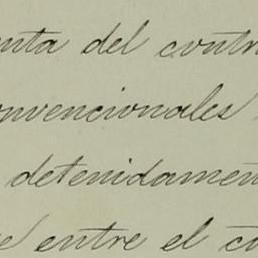 enta del contr
onvencionales
detenidamen
e entre el co